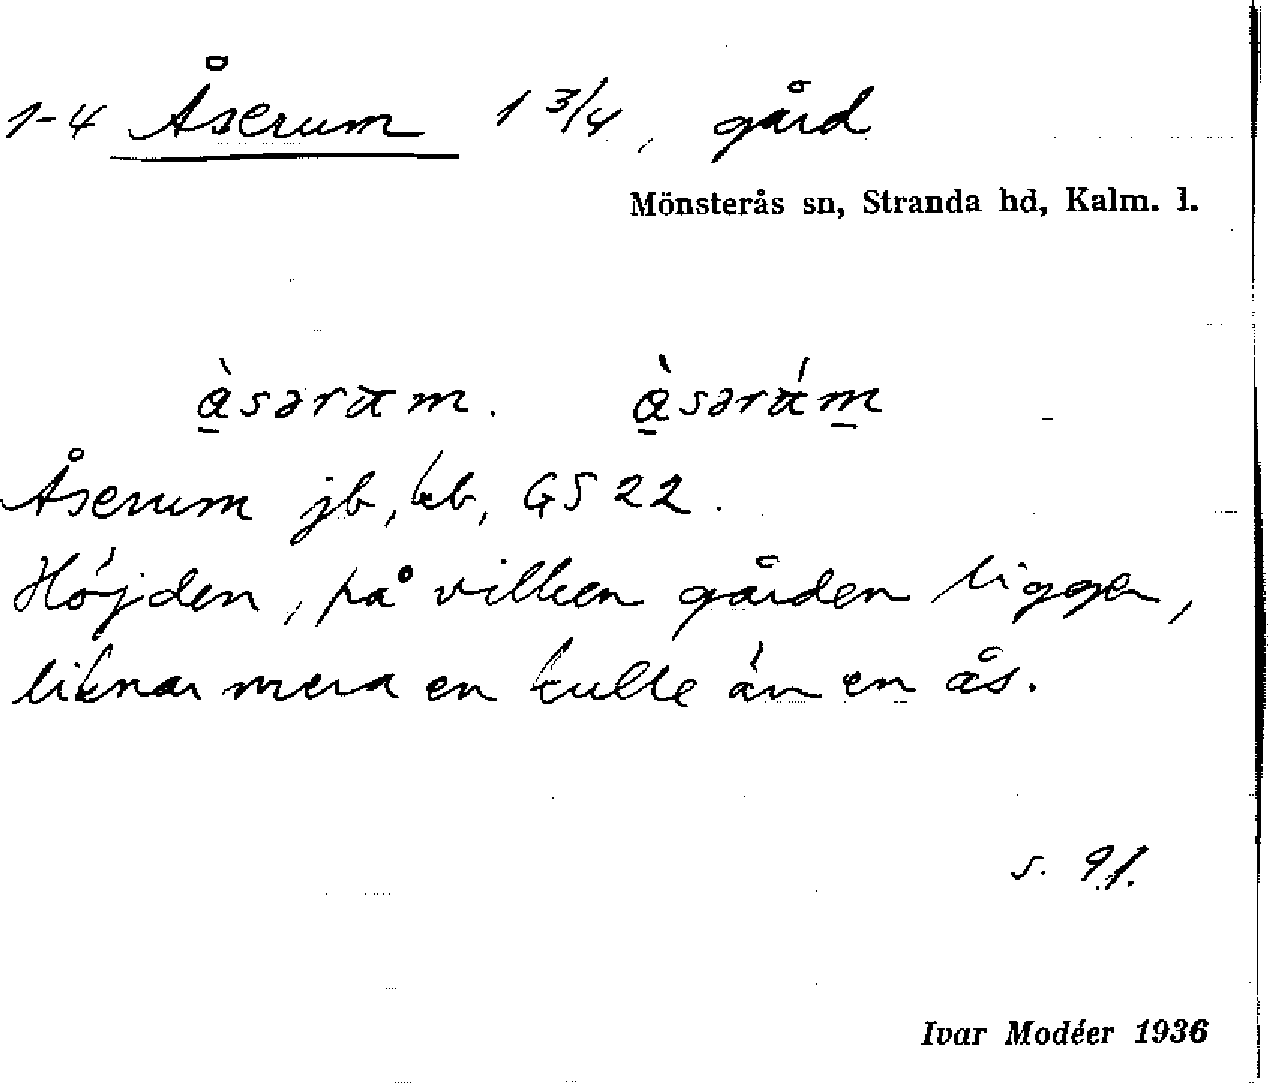 1-4 Åserum 1 3/4, gård
Mönsterås sn, Stranda hd, Kalm. l.
Åserum jb, kb, GS 22.
Höjden, på vilken gården ligger,
liknar mera en kulle än en ås.
s. 91.
Ivar Modéer 1936